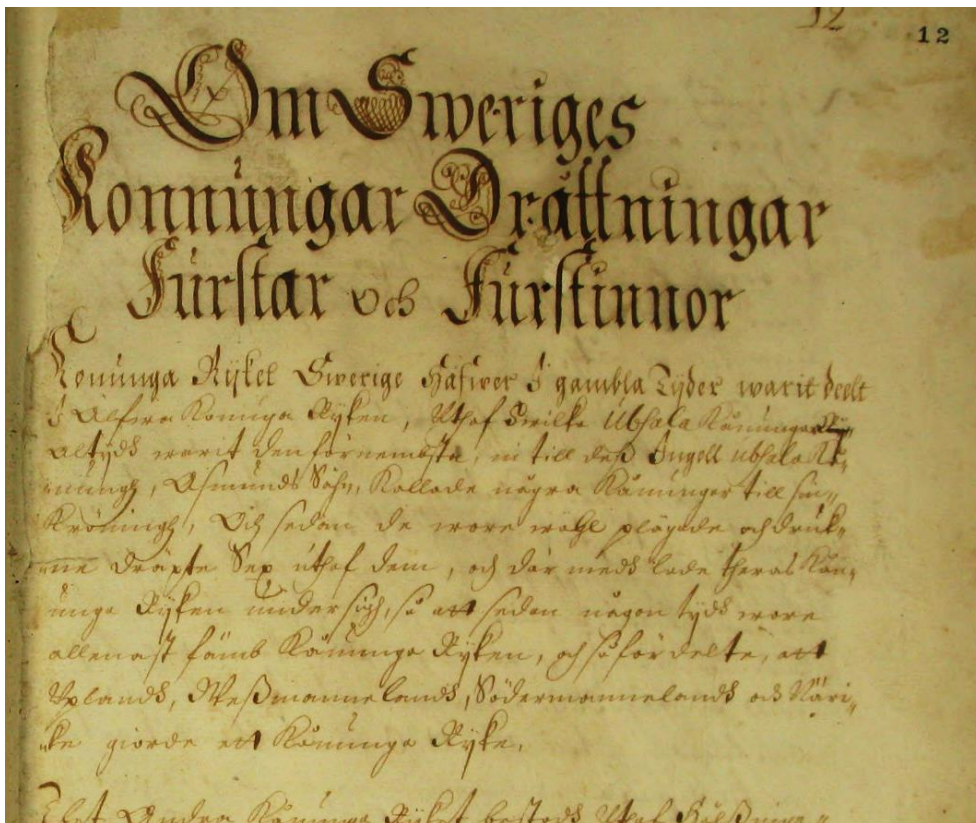 12
12
Om Sweriges
Konnungar Drättningar
Furstar och Furstinnor
Konunga Rijket Swerige Hafwer I gambla Tijder warit deelt
I Ålfwa Konunga Rijken, Uthaf hwilka Ubsala Konungar
altijdh warit den förnembsta, in till deß Ingell Ubsala Kå„
nungh, Åsmunds Sohn, Kallade någre Kånungar till sin„
Kröningh, Och sedan de wore wähl plägade och druk„
ne dräpte Sex uthaf dem, och där medh lade theras Kån„
unga Rijken under sigh, så att sedan någon tijdh wore
allenast fämb Kånunga Rijken, och så fördelte, att
Uplandh, Weßmannelandh, Södermannelandh och Näri„
„ke giorde ett Kånunga Rijke.
Det Andra Kånunga Rijket bestodh Uthaf